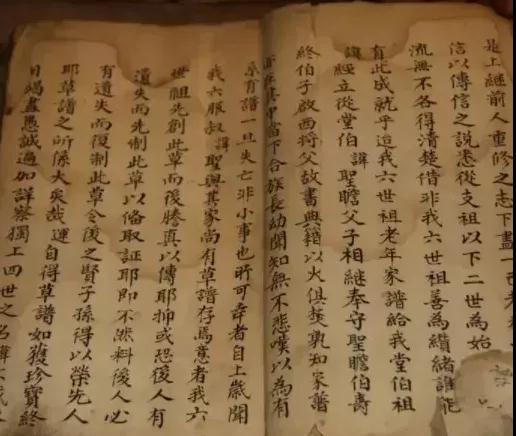 是上継前人重修之志下盡
信以傳信之說悉從支祖以下二世為始
流無不各得清楚借非我六世祖善為纘緒誰能
有此成就乎迨我六世祖老年家譜給我堂伯祖
諱經立從堂伯諱聖瞻父子相継奉守聖瞻伯壽
終伯子啟西將父故書典籍以火俱焚孰知家譜
亦在其中當下合族長幼聞知無不悲嘆以為有
系有譜一旦失亡非小事也所可幸者自上歲聞
我六服叔諱聖與其家尚有草譜存焉意者我六
世祖先創此草而後謄真以傳耶抑或恐後人有
遺失而先制此草以俻取証耶即不然料後人必
有遺失而復制此草令後之賢子孫得以榮先人
耶草譜之所係大矣哉運自得草譜如獲珍寶終
日竭盡愚誠過加詳察獨上四世之名諱